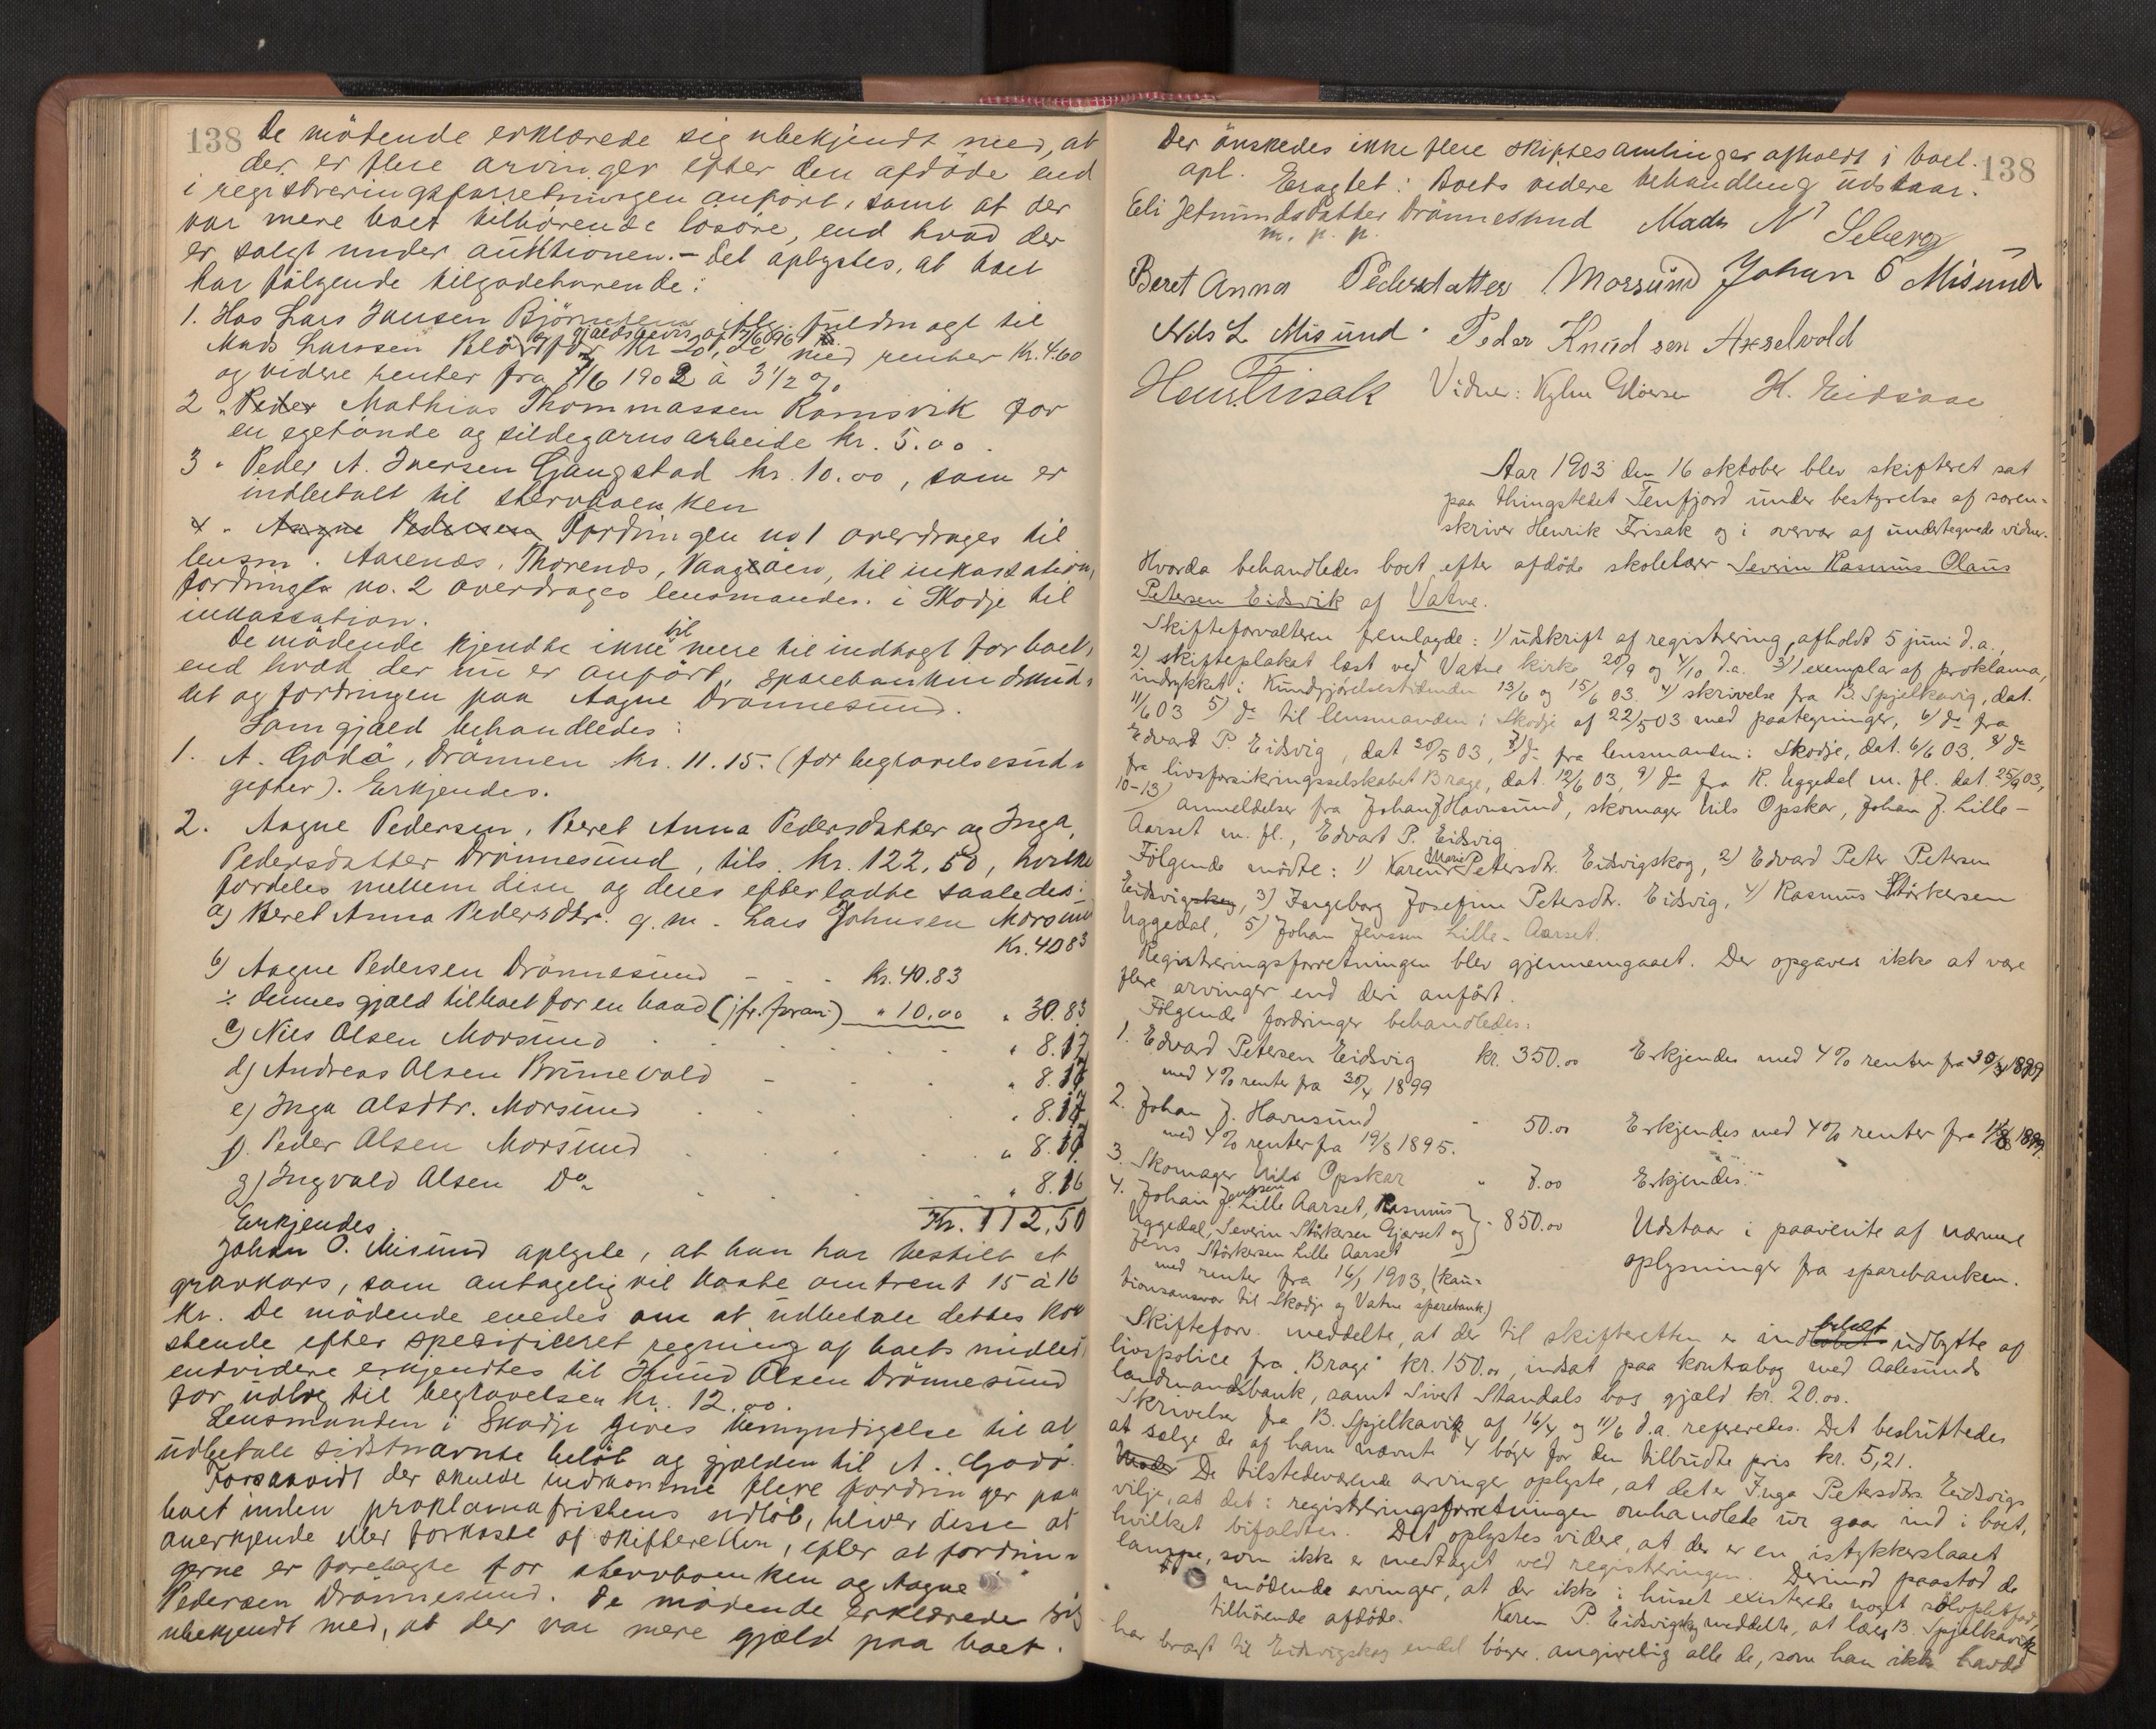 138 De mödende erklærede sig ubekjendt med, at
der er flere arvinger efter den afdöde end
i registreringsforretningen anfört, samt at der
var mere boet tilhörende lösöre, end hvad der
er solgt under auktionen. – Det oplystes, at boet
har fölgende tilgodehavende:
1. Hos Lars Jansen fuldmagt til
gjældsbevis af
Mads Larssen for Kr 20, med renter Kr. 4.60
og videre renter fra 7/6 1902 à 3 1/2 %
2 " Peder Mathias Thommassen Ramsvik for
en egetönde og sildegarnsarbeide kr. 5.00.
3 " Peder A. Iversen Gangstad kr. 10.00, som er
indbetalt til stervboenken
4 " Aagne Pedersen Fordringen no 1 overdrages til
lensm. Aarenæs, Thorenæs, til inkassation,
fordringen no. 2 overdrages lensmanden i Skodje til
inkassation.
til
De mödende kjendte ikke mere til indtægt for boet,
end hvad der nu er anfört, sparebankindskud-
det og fordringen paa Aagne Drönnesund.
Som gjæld behandledes:
1. A. Godö, Drönnen kr. 11.15. (for begravelsesud-
gifter). Erkjendes.
2. Aagne Pedersen, Beret Anna Pedersdatter og Inga
Pedersdatter Drönnesund, tils. kr. 122.50, hvilke
fordeles mellem disse og deres efterladte saaledes:
a) Beret Anna Pedersdtr. g. m. Lars Johnsen Morsund
Kr. 40 83
b) Aagne Pedersen Drönnesund - - - kr. 40.83
÷ dennes gjæld til boet for en baad (jfr. foran) " 10.00 " 30.83
c) Nils Olsen Morsund " 8.17
d) Andreas Olsen Brunevold " 8.17
e) Inga Olsdtr. Morsund " 8.17
f) Peder Olsen Morsund " 8.17
g) Ingvald Olsen Do " 8.16
Erkjendes. Kr. 112,50
Johan O. Misund oplyste, at han har bestilt et
gravkors, som antagelig vil koste omtrent 15 à 16
kr. De mödende enedes om at udbetale dettes ko-
stende efter specificeret regning af boets midler,
endvidere erkjendtes til Knud Olsen Drönnesund
for udlæg til begravelsen kr. 12.00.
Lensmanden i Skodje gives bemyndigelse til at
udbetale sidstnævnte belöb og gjælden til A. Godö.
Forsaavidt der skulde indkomme flere fordringer paa
boet inden proklamafristens udlöb, bliver disse at
anerkjende eller forkaste af skifteretten, efter at fordrin-
gerne er forelagte for stervboenken og Aagne
Pedersen Drönnesund. De mödende erklærede sig
ubekjendt med, at der var mere gjæld paa boet.
Der önskedes ikke flere skiftesamlinger afholdt i boet. 138
opl. Eragtet: Boets videre behandling udstaar.
Eli Jetmundsdatter Drönnesund Mads N Seberg
m. p. p.
Beret Anna Pedersdatter Morsund Johan O Misund
Nils L Misund. Peder Knudsen Axselvold
Henr. Frisak Vidner: H. Eidsaae
Aar 1903 den 16 oktober blev skifteret sat
paa thingstedet Tenfjord under bestyrelse af soren-
skriver Henrik Frisak og i overvær af undertegnede vidner.
Hvorda behandledes boet efter afdöde skolelærer Severin Rasmus Olaus
Petersen Eidsvik af Vatne.
Skifteforvalteren fremlagde: 1) udskrift af registrering, afholdt 5 juni d.a.,
2) skifteplakat læst ved Vatne kirke 20/9 og 4/10 d.a. 3) exemplar af proklama,
indrykket i Kundgjörelsestidende 13/6 og 15/6 03 4) skrivelse fra B. Spjelkavig, dat.
11/6 03 5) do til lensmanden i Skodje af 22/5 03 med paategninger, 6) do fra
Edvard P. Eidsvig, dat 20/5 03, 7) do fra lensmanden i Skodje, dat. 6/6 03, 8) do
fra livsforsikringsselskabet Brage, dat. 12/6 03, 9) do fra R. Uggedal m. fl. dat. 25/9 03,
10-13) anmeldelser fra Johan J Havnsund, skomager Nils Opskar, Johan J. Lille-
Aarset m. fl., Edvart P. Eidsvig
Marie
Fölgende mödte: 1) Karen Petersdtr. Eidsvigskog, 2) Edvard Peter Petersen
Eidsvigskog, 3) Ingeborg Josefine Petersdtr. Eidsvig, 4) Rasmus Störkersen
Uggedal, 5) Johan Jenssen Lille-Aarset.
Registreringsforretningen blev gjennemgaaet. Der opgaves ikke at være
flere arvinger end deri anfört.
Fölgende fordringer behandledes:
1. Edvard Petersen Eidsvig kr. 350.00 Erkjendes med 4% renter fra 30/4 1899
med 4% renter fra 30/4 1899
2. Johan J. Havnsund " 50.00 Erkjendes med 4% renter fra
med 4% renter fra 19/8 1895.
3. Skomager Nils Opskar " 7.00 Erkjendes.
4. Johan Jenssen Lille Aarset, Rasmus
Uggedal, Severin Störkersen Gjærset og " 850.00 Udstaar i paavente af nærmere
Jens Störkersen Lille Aarset oplysninger fra sparebanken.
med renter fra 16/1 1903, (kau-
tionsansvar til Skodje og Vatne sparebank)
betalt
Skifteforv. meddelte, at der til skifteretten er indlöbet udbytte af
livspolice fra "Brage" kr. 150.00, indsat paa kontrabog med Aalesunds
landmandsbank, samt Sivert Standals bos gjæld kr. 20.00.
Skrivelse fra B. Spjelkavik af 16/4 og 11/6 d.a. refereredes. Det besluttedes
at sælge de af ham nævnte 4 böger for den tilbudte pris kr. 5,21.
De tilstedeværende arvinger oplyste, at det er Inga Petersdtr. Eidsvigs
vilje, at det i registreringsforretningen omhandlede ur gaar ind i boet,
hvilket bifaldtes. Det oplystes videre, at der er en istykkerslaaet
lampe, som ikke er medtaget ved registreringen. Derimod paastod de
mödende arvinger, at der ikke i huset existerede noget sölvpletfad,
tilhörende afdöde. Karen P. Eidsvigskog meddelte, at lærer B. Spjelkavik
har bragt til Eidsvigskog endel böger, angivelig alle de, som han ikke havde